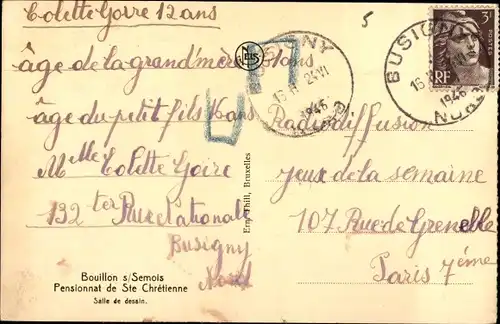 Colette Goire 12 ans
âge de la grand'mère ans
âge du petit fils 16 ans
Mlle Colette Goire
132 ter Rue Nationale
Busigny
Nord
Bouillon s/Semois
Pensionnat de Ste Chrétienne
Salle de dessin.
Ern. Thill, Bruxelles
NELS
5
BUSIGNY
1945
BUSIGNY
1945
NORD
3F
RF
Radiodiffusion
Jeux de la semaine
107 Rue de Grenelle
Paris 7ème